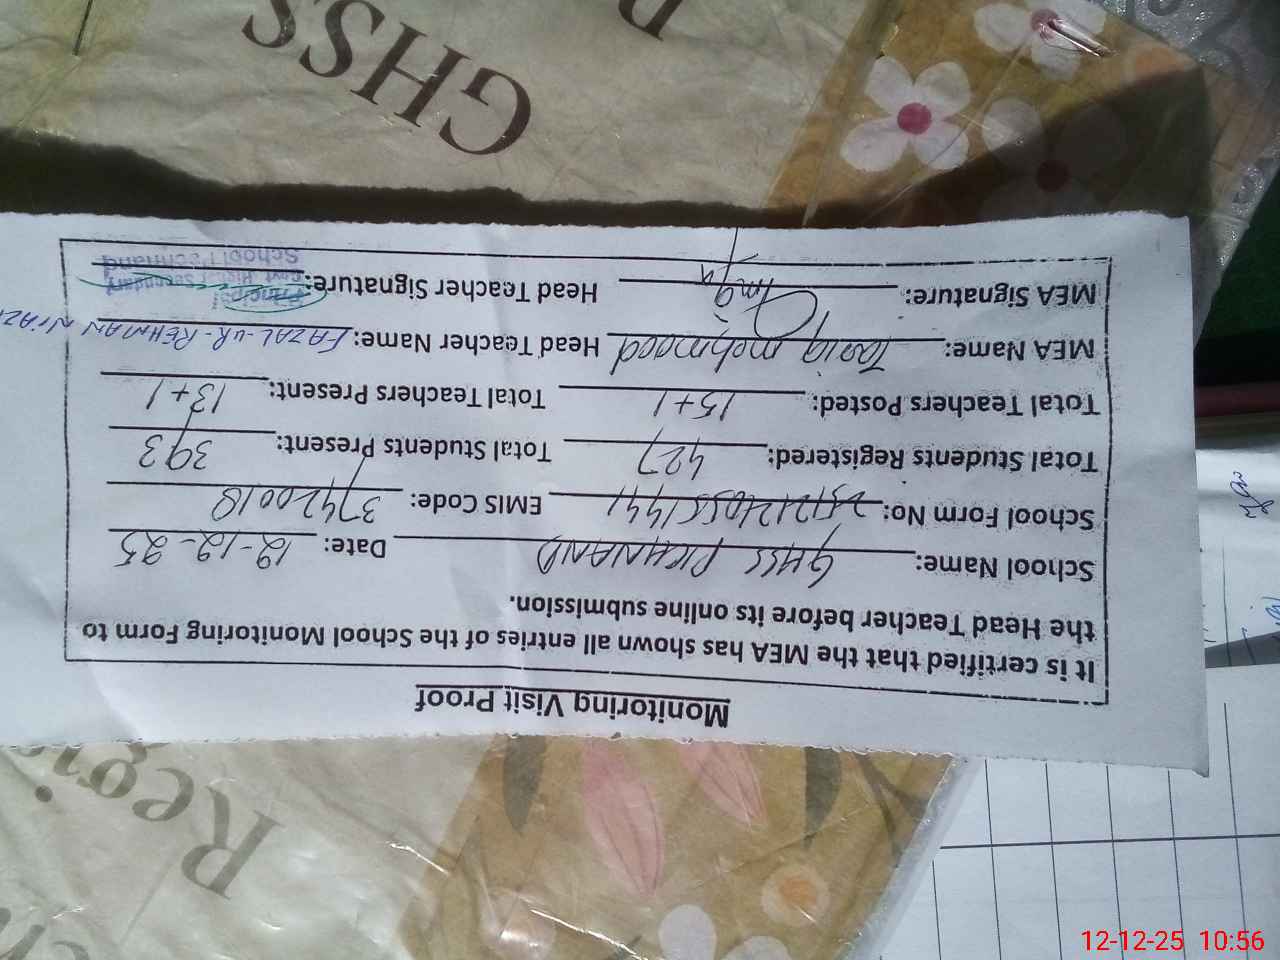 GHSS
Monitoring Visit Proof
It is certified that the MEA has shown all entries of the School Monitoring Form to
the Head Teacher before its online submission.
School Name: GHSS PICHNAND Date: 12-12-25
School Form No: EMIS Code: 37420010
Total Students Registered: 427 Total Students Present: 393
Total Teachers Posted: 15+1 Total Teachers Present: 13+1
MEA Name: Tariq mehmood Head Teacher Name: FAZAL-UR-REHMAN NIAZI
MEA Signature: Head Teacher Signature:
Principal
Govt. Higher Secondary
School Pichnand
Regis
12-12-25 10:56